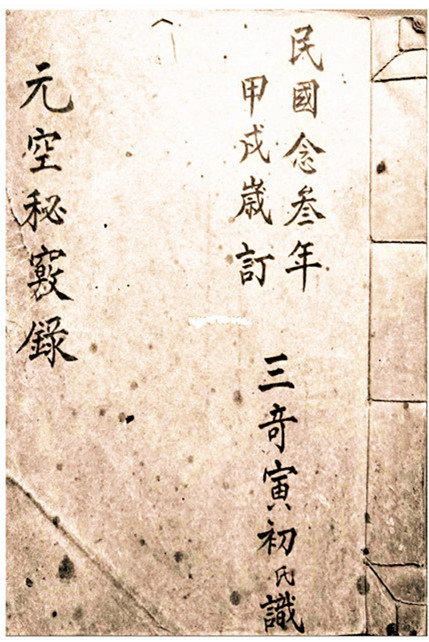 民國念叁年
甲戌歲訂
三奇寅初氏識
元空秘竅錄